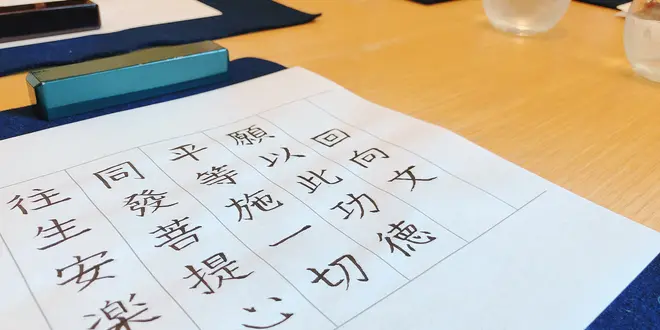 回向文
願以此功徳
平等施一切
同發菩提心
往生安楽